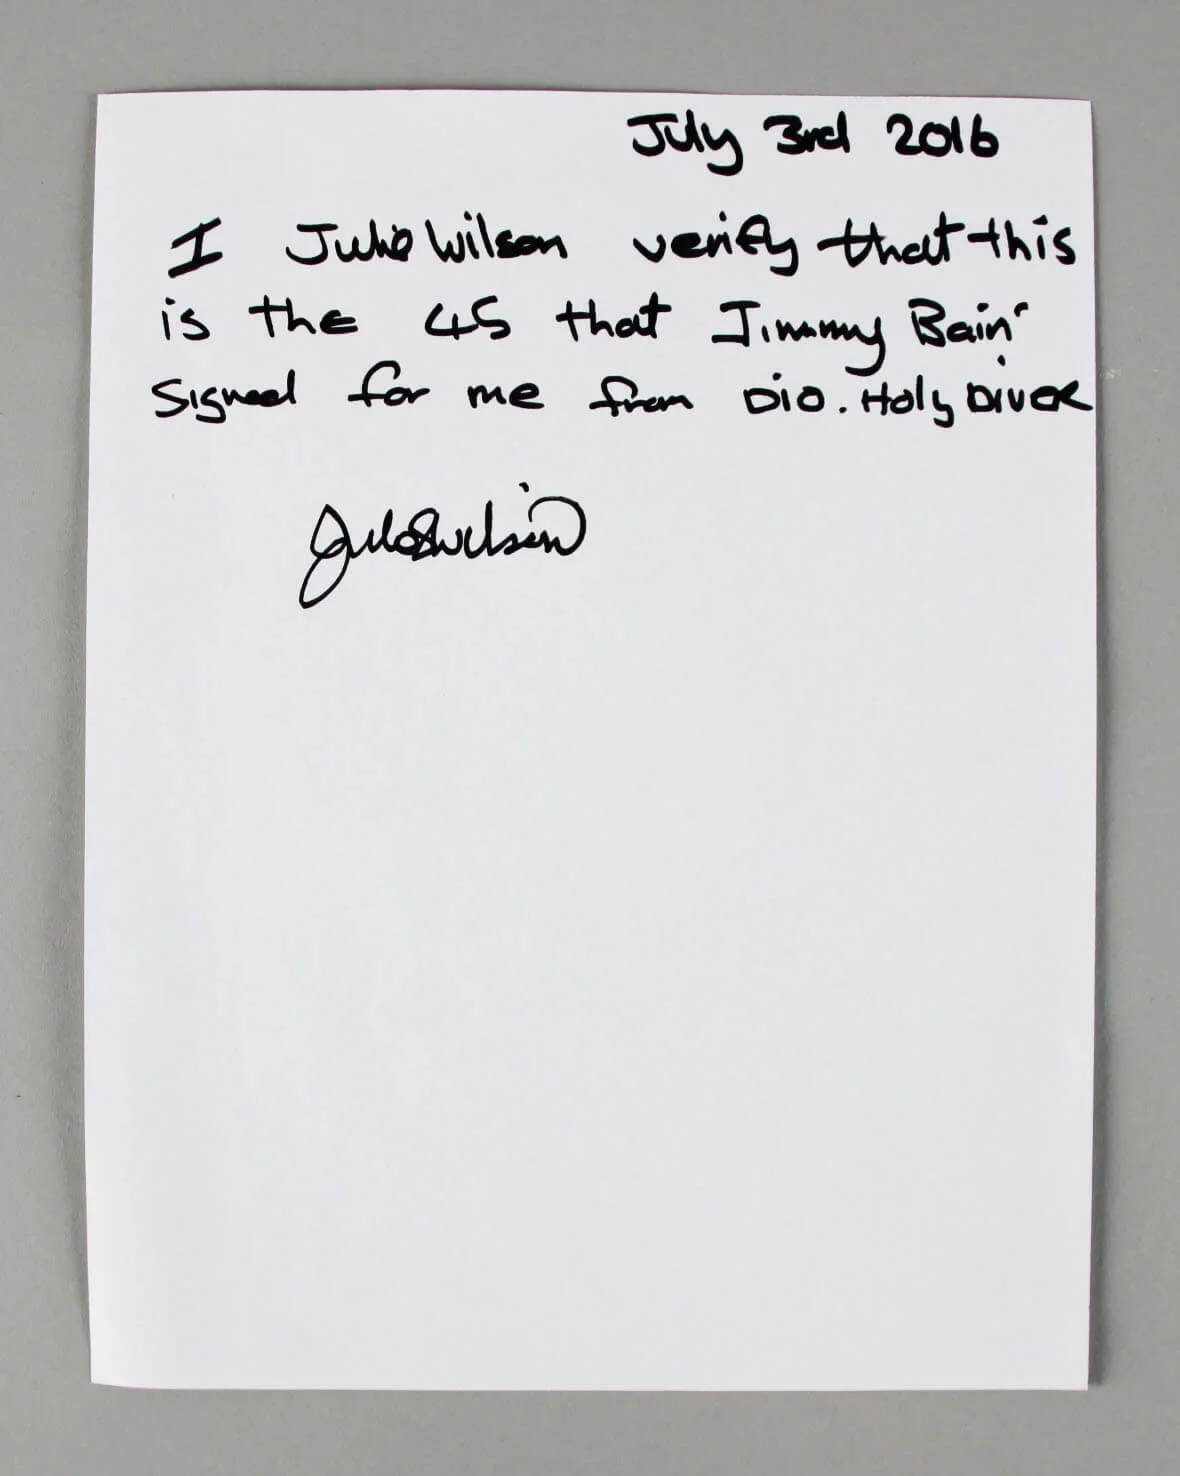 July 3rd 2016
I Julie Wilson verify that this
is the 45 that Jimmy Bain
signed for me from DIO. Holy Diver
Julie Wilson